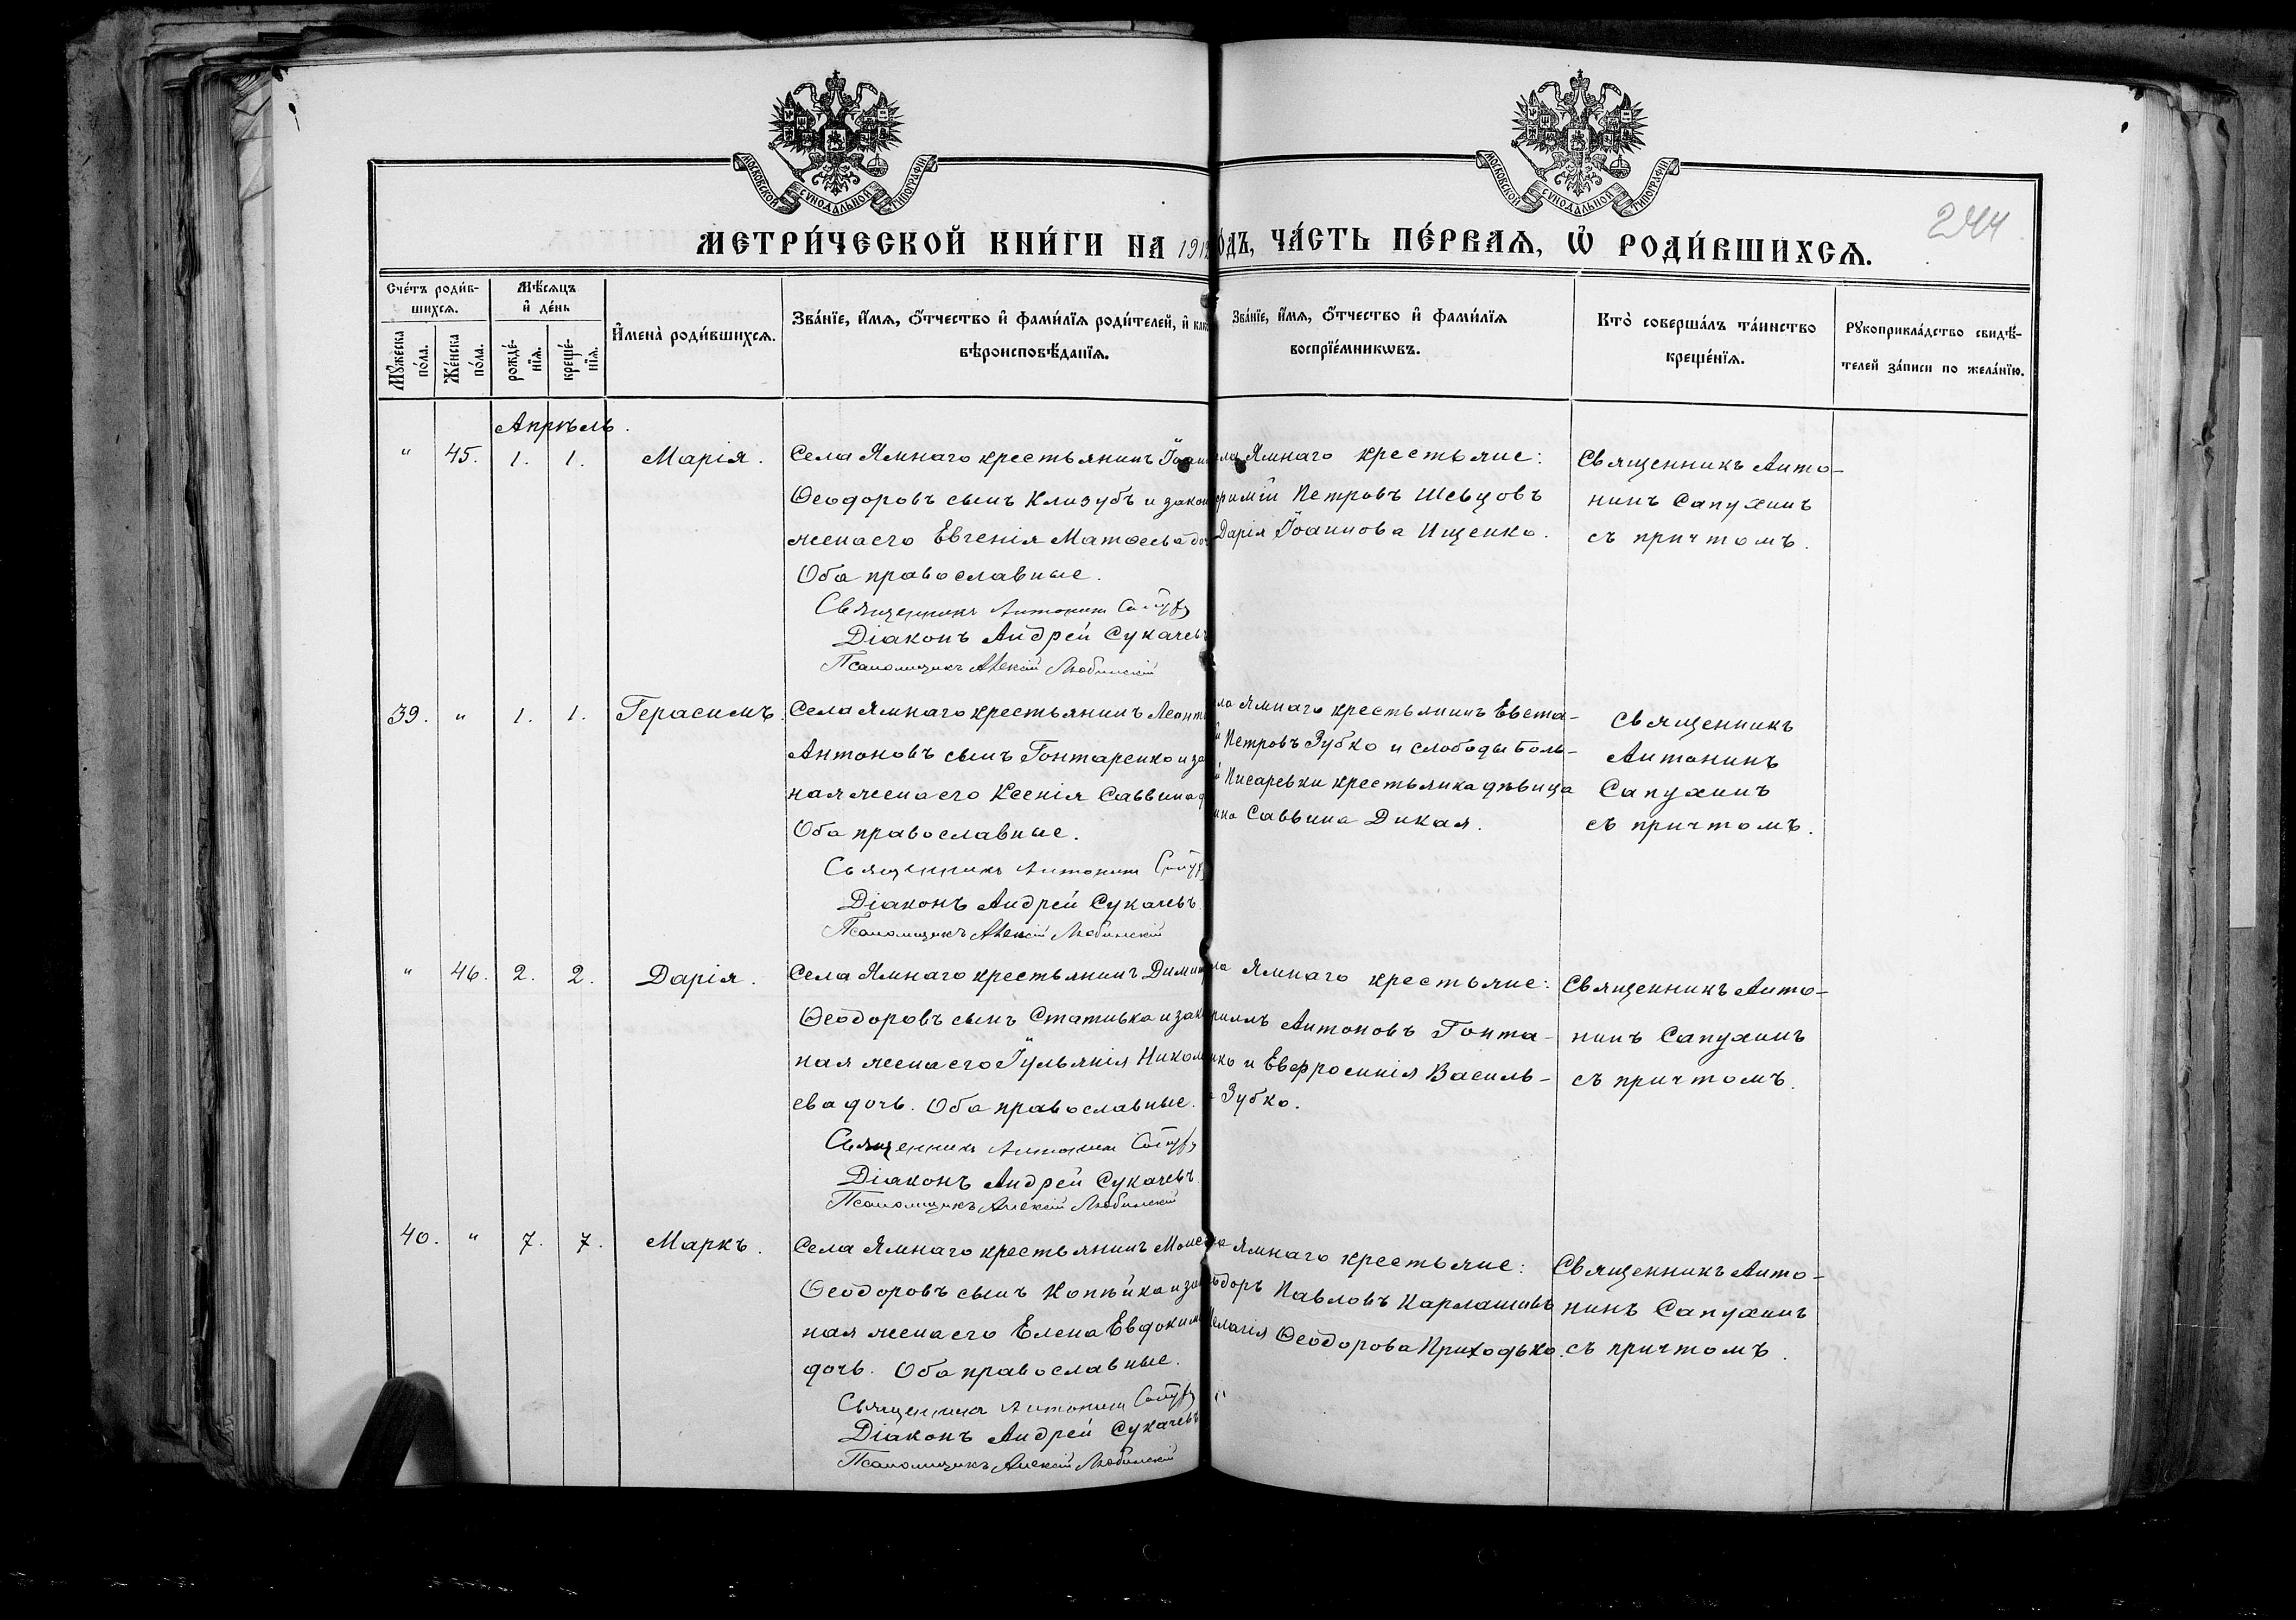 МОСКОВСКОЙ СУНОДАЛЬНОЙ ТИПОГРАФІИ
МОСКОВСКОЙ СУНОДАЛЬНОЙ ТИПОГРАФІИ
244
МЕТРИ́ЧЕСКОЙ КНИ́ГИ НА 1912
О́ДЪ, ЧА́СТЬ ПЕ́РВАѦ, Ѡ҆ РОДИ́ВШИХСѦ.
Сче́тъ роди́в-
шихсѧ.
Мѣ́сѧцъ
и҆ де́нь
Мꙋ́жеска по́ла.
Же́нска по́ла.
рожде́-
нїѧ.
креще́-
нїѧ.
И҆мена̀ роди́вшихсѧ.
Зва́нїе, и҆́мѧ, ѻ҆́тчество и҆ фами́лїѧ роди́телей, и҆ как
вѣроисповѣ́данїѧ.
Зва́нїе, и҆́мѧ, ѻ҆́тчество и҆ фами́лїѧ
воспрїе́мникѡвъ.
Кто̀ соверша́лъ та́инство
креще́нїѧ.
Рꙋкоприкла́дство свидѣ́-
телей за́писи по жела́нїю.
Апрѣль.
" 45. 1. 1. Марія.
Села Ямнаго крестьянинъ Іоан
Ѳеодоровъ сынъ Клизубъ и закон
жена его Евгенія Матѳеева до
Оба православные.
Священникъ Антонин
Діаконъ Андрей Сукачевъ
Псаломщикъ Алексій Любинскій
ла Ямнаго крестьяне:
фимій Петровъ Шевцовъ
Дарія Іоаннова Ищенко.
Священникъ Анто-
нинъ Сапухинъ
съ причтомъ.
39. " 1. 1. Герасимъ.
Села Ямнаго крестьянинъ Леонт
Антоновъ сынъ Гонтаренко и за
ная жена его Ксенія Саввина д
Оба православные.
Священникъ Антонин
Діаконъ Андрей Сукачевъ
Псаломщикъ Алексій Любинскій
ла Ямнаго крестьянинъ Евста-
й Петровъ Зубко и слободы Боль-
й Писаревки крестьянка дѣвица
Саввина Дикая.
Священникъ
Антонинъ
Сапухинъ
съ причтомъ.
" 46. 2. 2. Дарія.
Села Ямнаго крестьянинъ Димит
Ѳеодоровъ сынъ Стативка и зак
ная жена его Іульянія Никол
ева дочь. Оба православные.
Священникъ Антонин
Діаконъ Андрей Сукачевъ
Псаломщикъ Алексій Любинскій
ла Ямнаго крестьяне:
риллъ Антоновъ Гонта-
нко и Евфросинія Василь-
Зубко.
Священникъ Анто-
нинъ Сапухинъ
съ причтомъ.
40. " 7. 7. Маркъ.
Села Ямнаго крестьянинъ Моис
Ѳеодоровъ сынъ Копѣйка и за
ная жена его Елена Евдоким
дочь. Оба православные.
Священникъ Антонин
Діаконъ Андрей Сукачевъ
Псаломщикъ Алексій Любинскій
Ямнаго крестьяне:
доръ Павловъ Карлашовъ
Пелагія Ѳеодорова Приходько.
Священникъ Анто-
нинъ Сапухинъ
съ причтомъ.